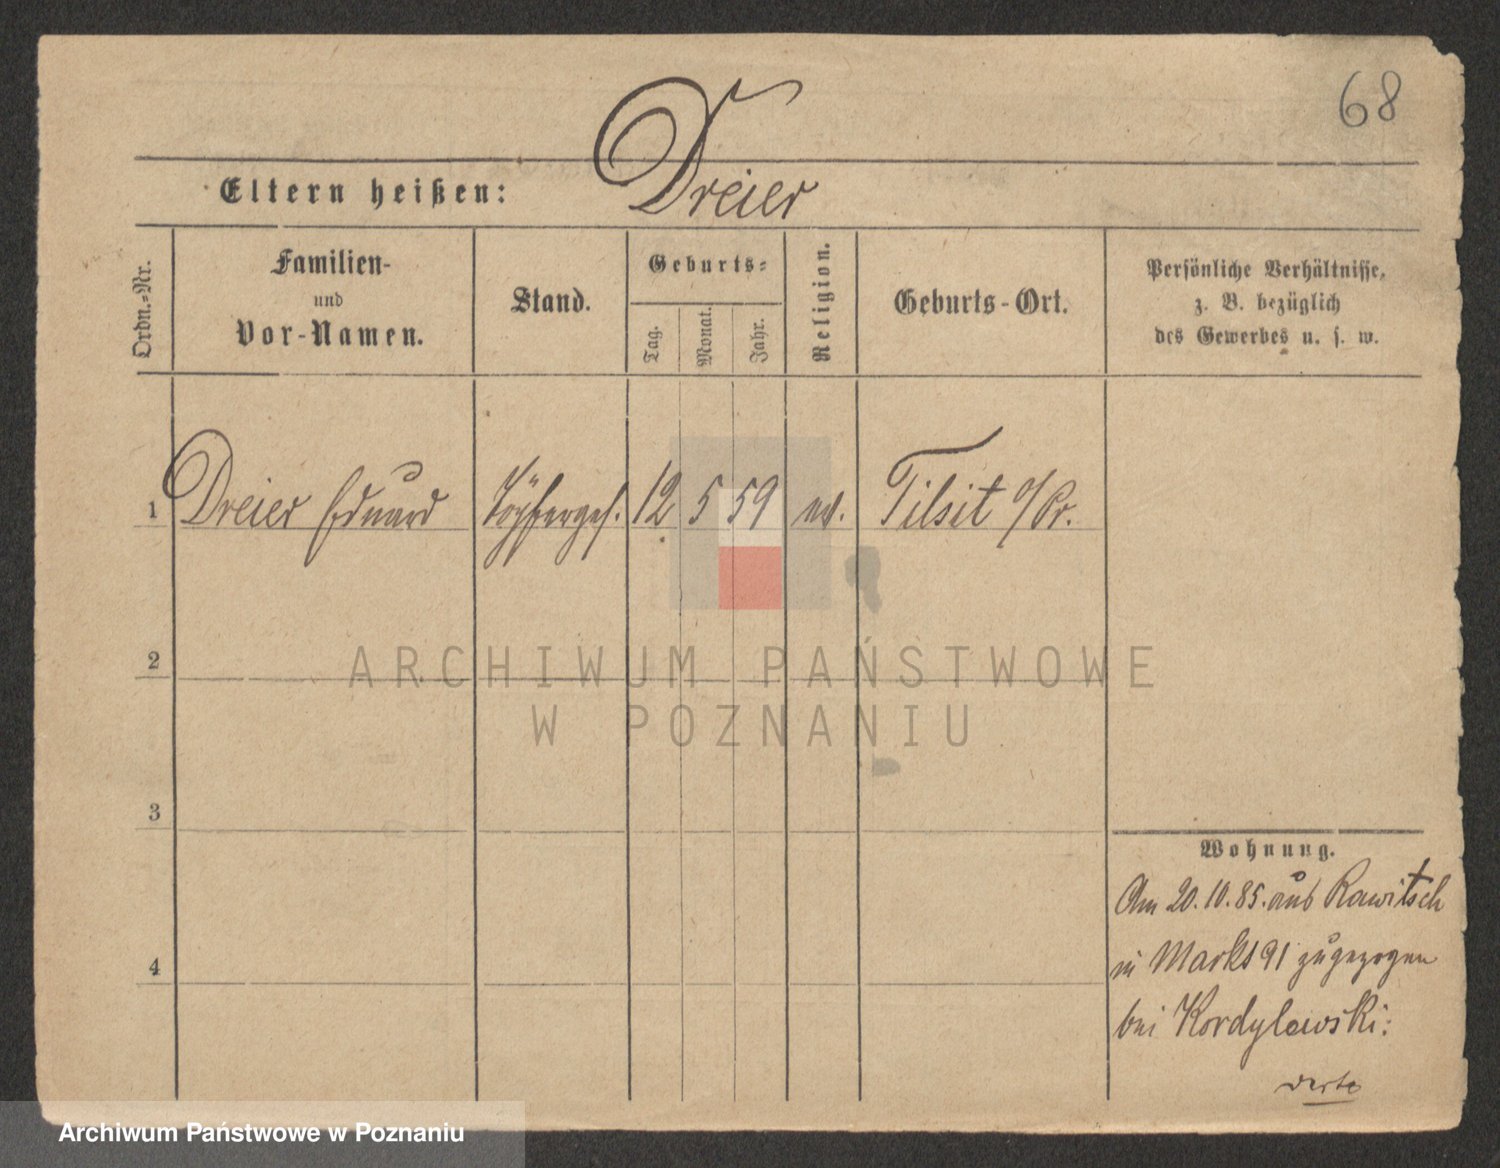 68
Eltern heißen: Dreier
Ordn.-Nr.
Familien-
und
Vor-Namen.
Stand.
Geburts-
Tag.
Monat.
Jahr.
Religion.
Geburts-Ort.
Persönliche Verhältnisse,
z. B. bezüglich
des Gewerbes u. s. w.
1 Dreier Eduard Töpferges. 12 5 59 ev. Tilsit o/Pr.
2
3
4
Wohnung.
Am 20.10.85. aus Rawitsch
in Markt 91 zugezogen
bei Kordylewski.
ARCHIWUM PAŃSTWOWE
W POZNANIU
Archiwum Państwowe w Poznaniu